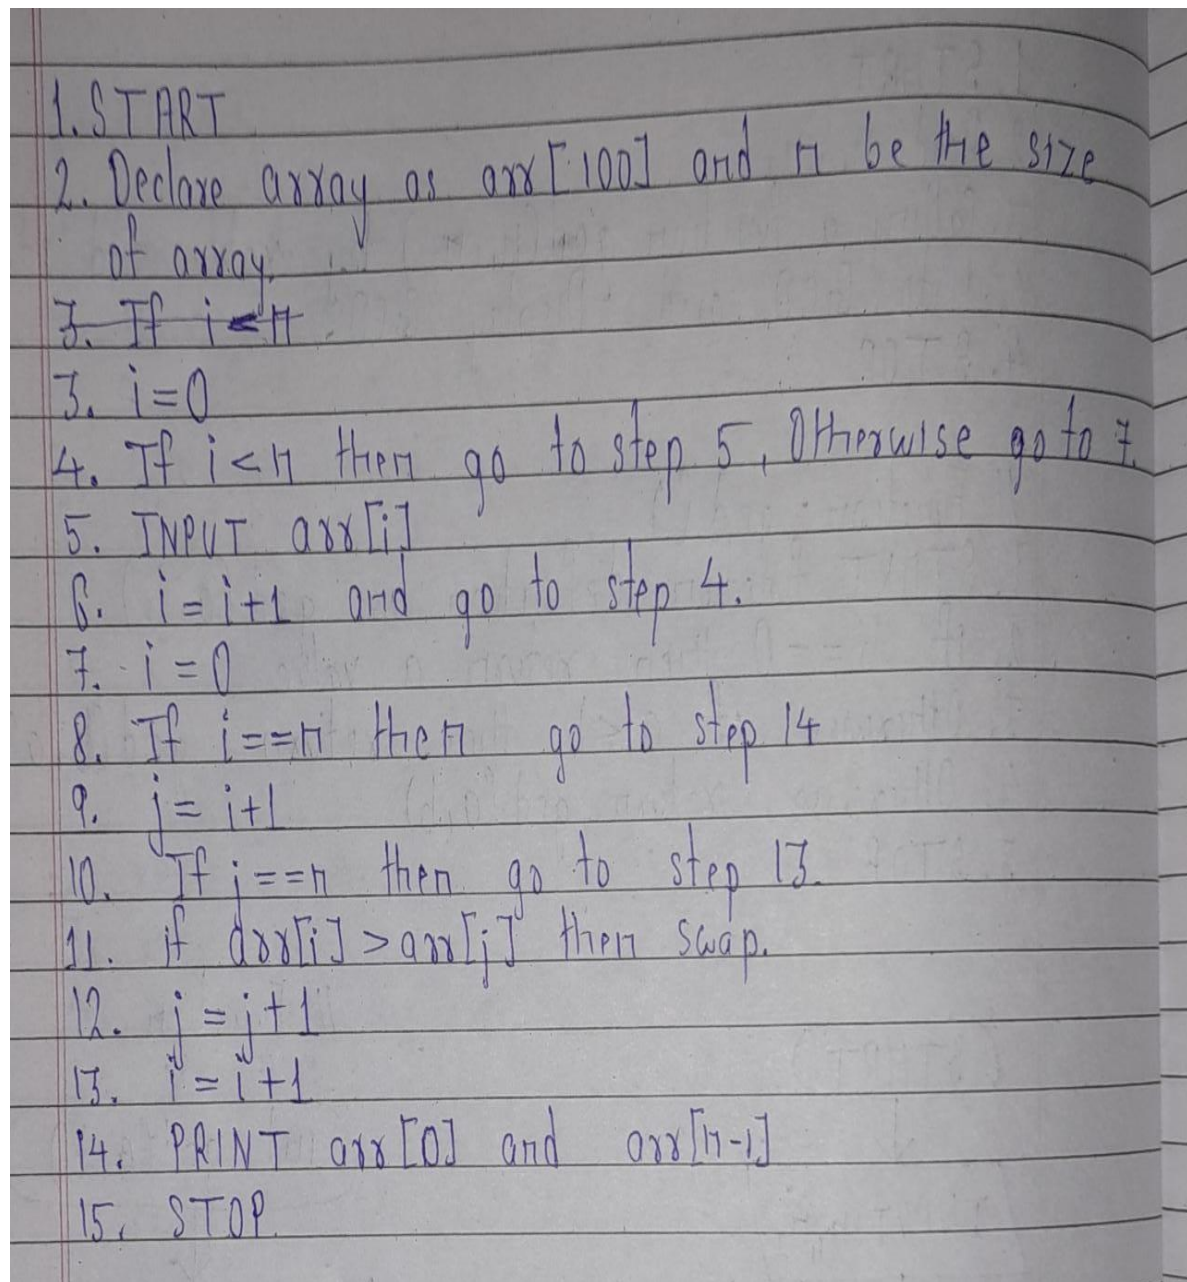 1. START
2. Declare array as arr[100] and n be the size
of array.
3. If i<n
3. i=0
4. If i<n then go to step 5, Otherwise go to 7.
5. INPUT arr[i]
6. i=i+1 and go to step 4.
7. i=0
8. If i==n then go to step 14
9. j=i+1
10. If j==n then go to step 13.
11. if arr[i]>arr[j] then swap.
12. j=j+1
13. i=i+1
14. PRINT arr[0] and arr[n-1]
15. STOP.